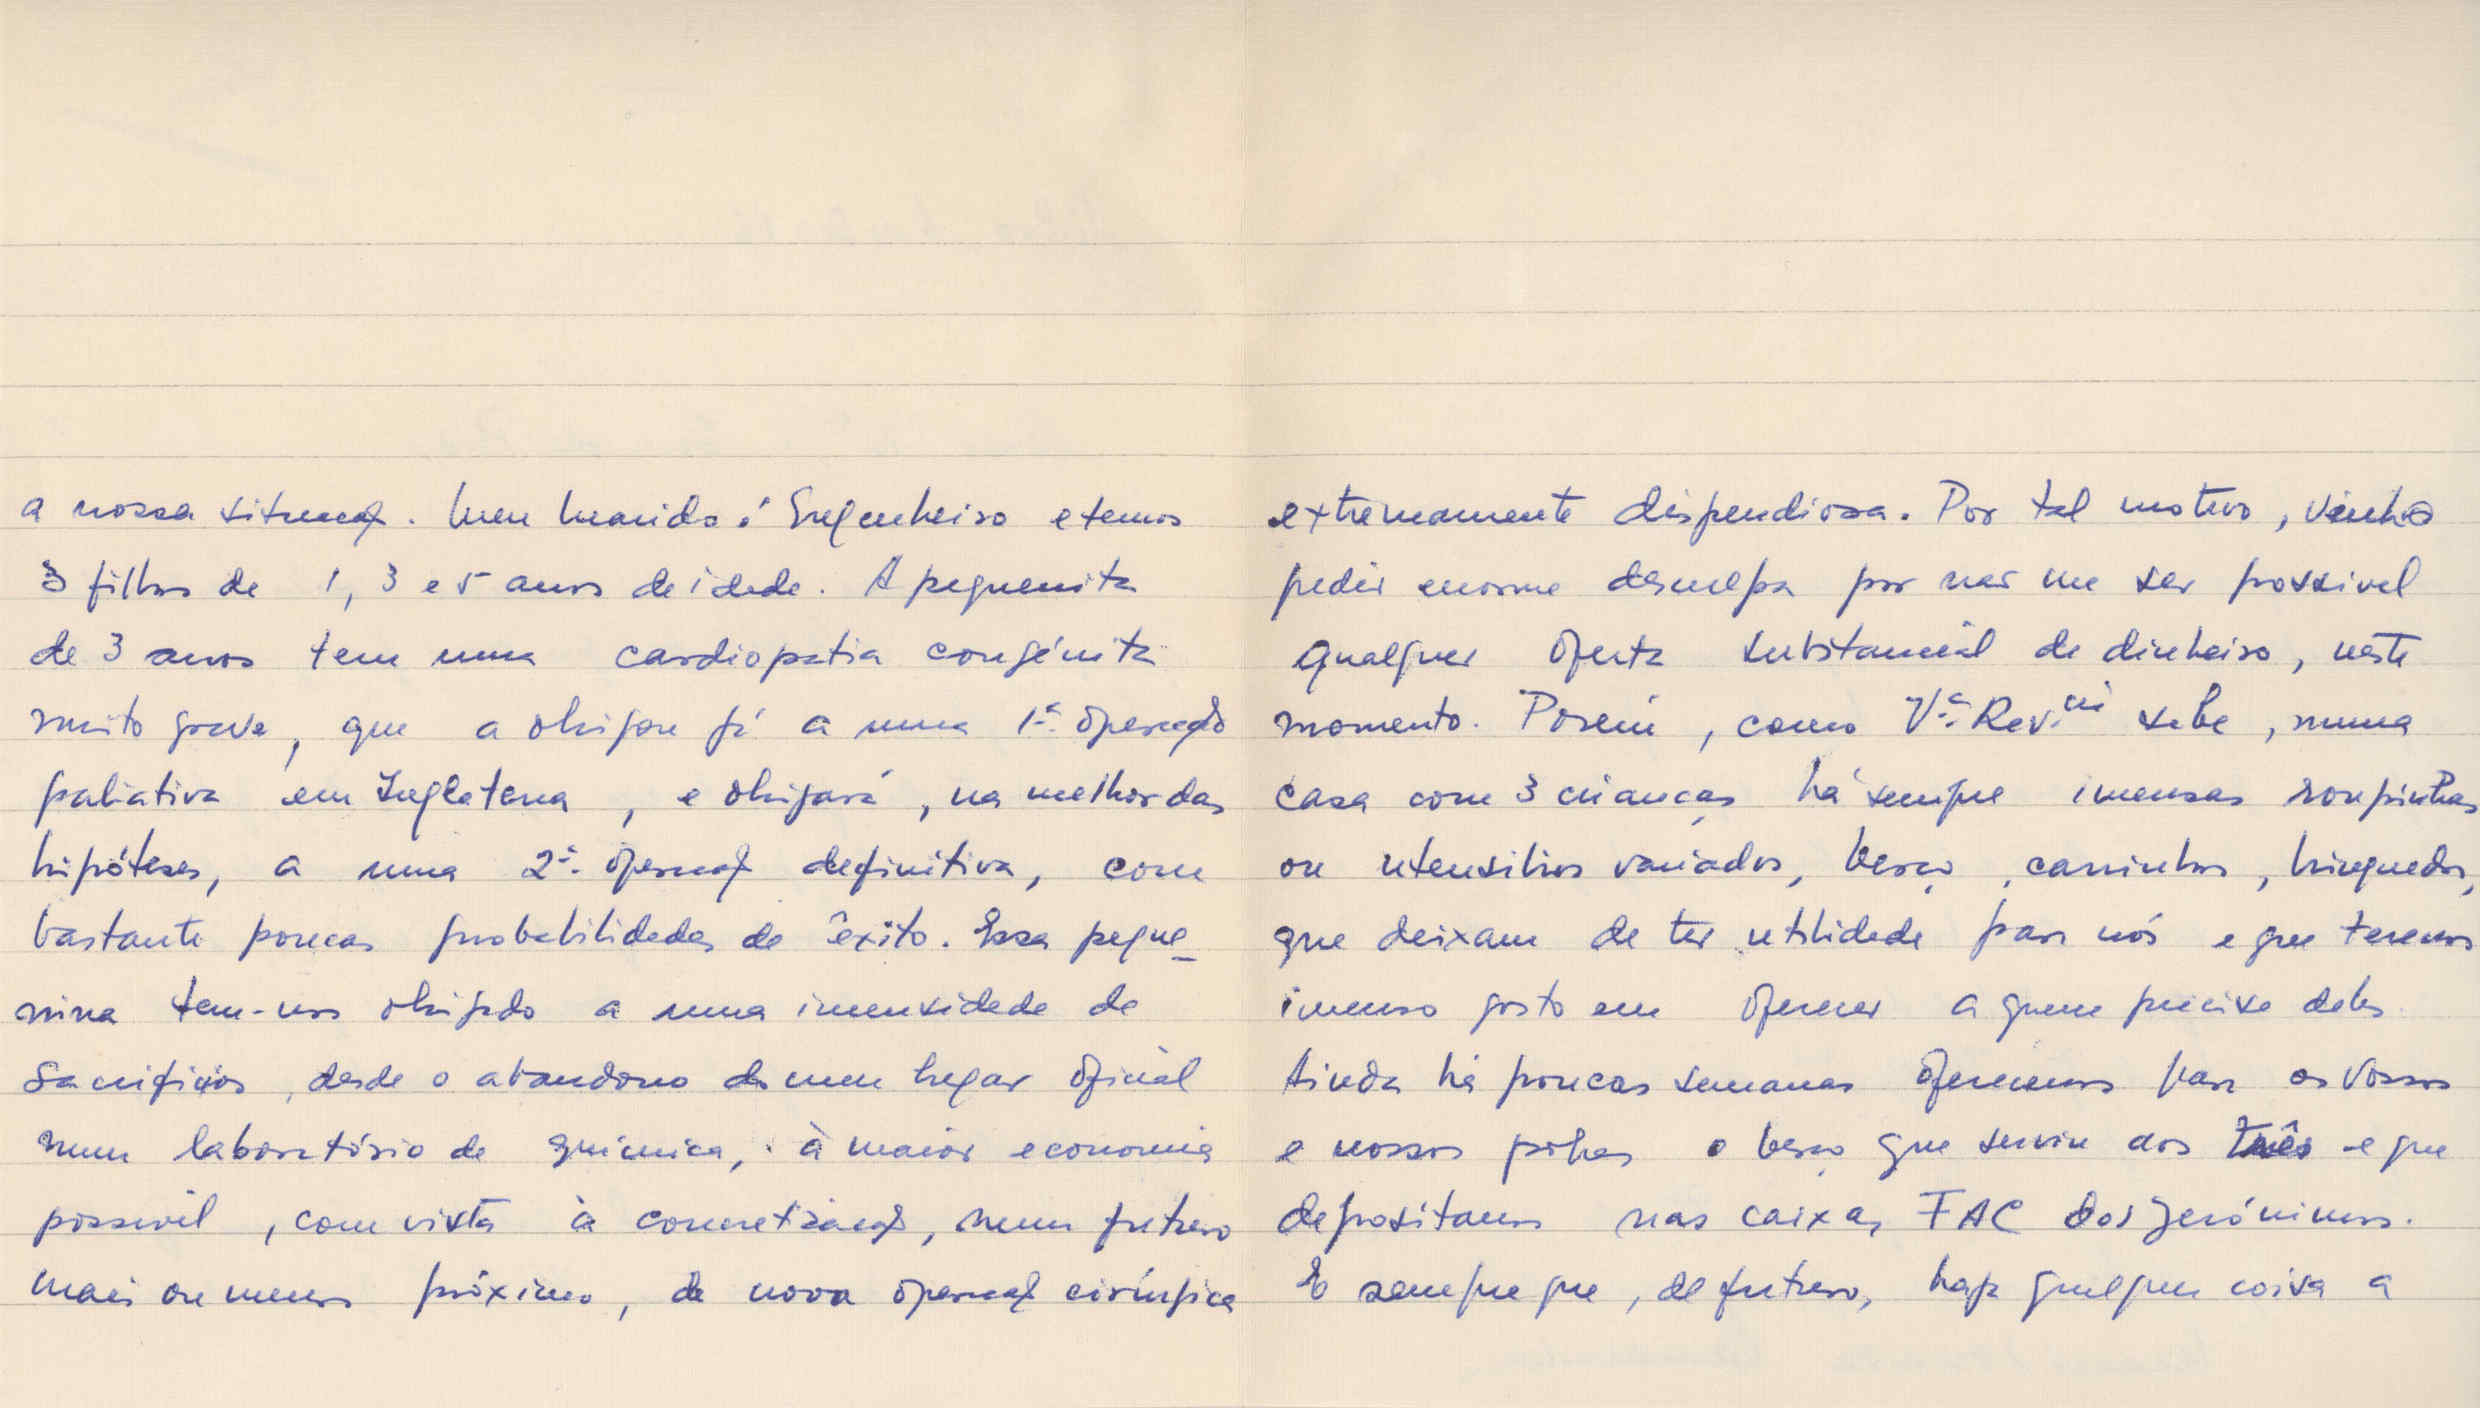 a nossa situação. Meu marido é Engenheiro e temos
3 filhos de 1, 3 e 5 anos de idade. A pequenita
de 3 anos tem uma cardiopatia congénita
muito grave, que a obrigou já a uma 1ª operação
paliativa em Inglaterra, e obrigará, na melhor das
hipóteses, a uma 2ª operação definitiva, com
bastante poucas probabilidades de êxito. Essa peque-
nina tem-nos obrigado a uma imensidade de
sacrifícios, desde o abandono do meu lugar oficial
num laboratório de química, à maior economia
possível, com vista à concretização, num futuro
mais ou menos próximo, da nova operação cirúrgica
extremamente dispendiosa. Por tal motivo, venho
pedir enorme desculpa por não me ser possível
qualquer oferta substancial de dinheiro, neste
momento. Porém, como Vª Rev.cia sabe, numa
casa com 3 crianças há sempre imensas roupinhas
ou utensílios variados, berço, carrinhos, brinquedos,
que deixam de ter utilidade para nós e que teremos
imenso gosto em oferecer a quem precise deles.
Ainda há poucas semanas oferecemos para os vossos
e nossos pobres o berço que serviu aos três e que
depositamos nas caixas FAC dos Jerónimos.
E sempre que, de futuro, haja qualquer coisa a